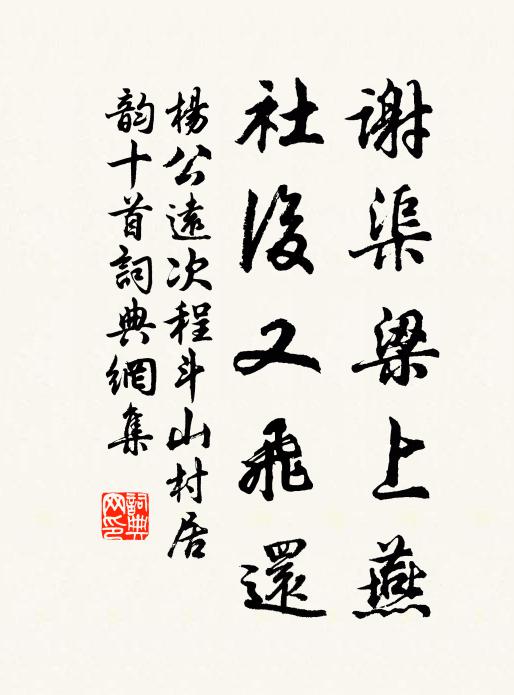 謝渠梁上燕
社後又飛還
楊公遠次程斗山村居
韵十首詞典網集
詞典
网印